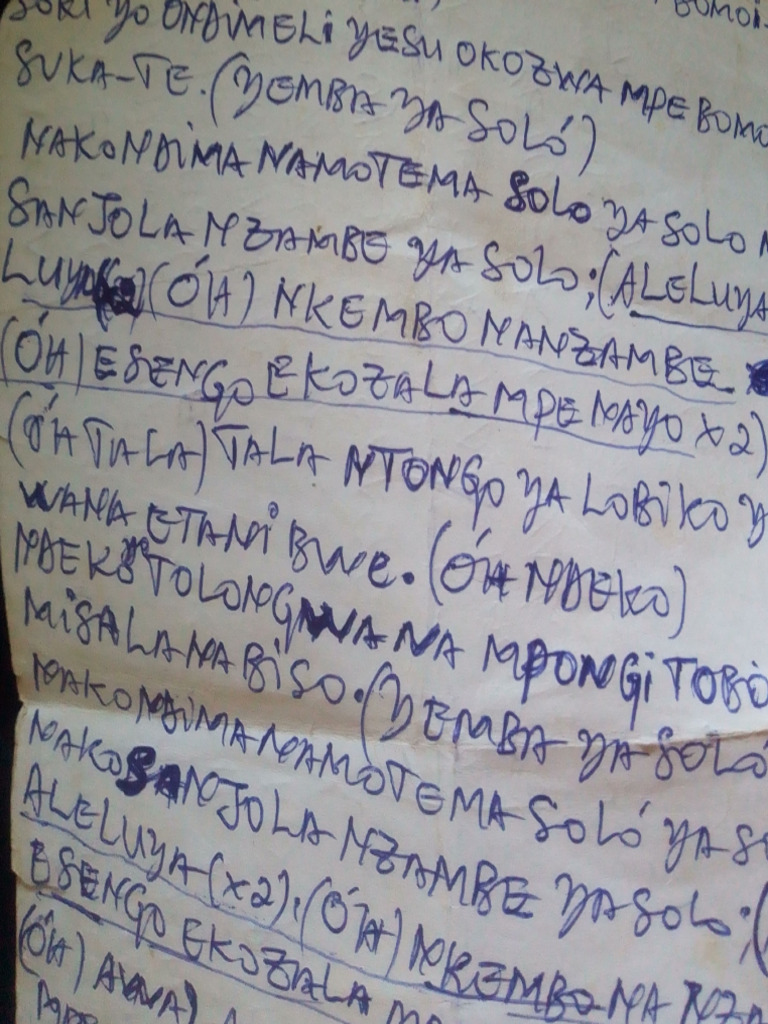 SOKI YO ONDIMELI YESU OKOZWA MPE BOMO
SUKA-TE. (YEMBA YA SOLÓ)
NAKONDIMA NAMOTEMA SOLO YA SOLO N
SANJOLA NZAMBE YA SOLO; (ALELUYA
LUYA (ÓH) NKEMBO NANZAMBE
(ÓH) ESENGO EKOZALA MPENAYO X2)
(ÓH TALA) TALA NTONGO YA LOBIKO Y
WANA ETANI BWE. (ÓH NDEKO)
NDEKO TOLONGWANA MPONGI TOBO
MISALA NA BISO. (YEMBA YA SOLÓ
NAKONDIMANAMOTEMA SOLÓ YA SO
NAKOSANJOLA NZAMBE YA SOLO; (
ALELUYA (X2). (ÓH) NKEMBO NA NZA
ESENGO EKOZALA
(ÓH) AWA)